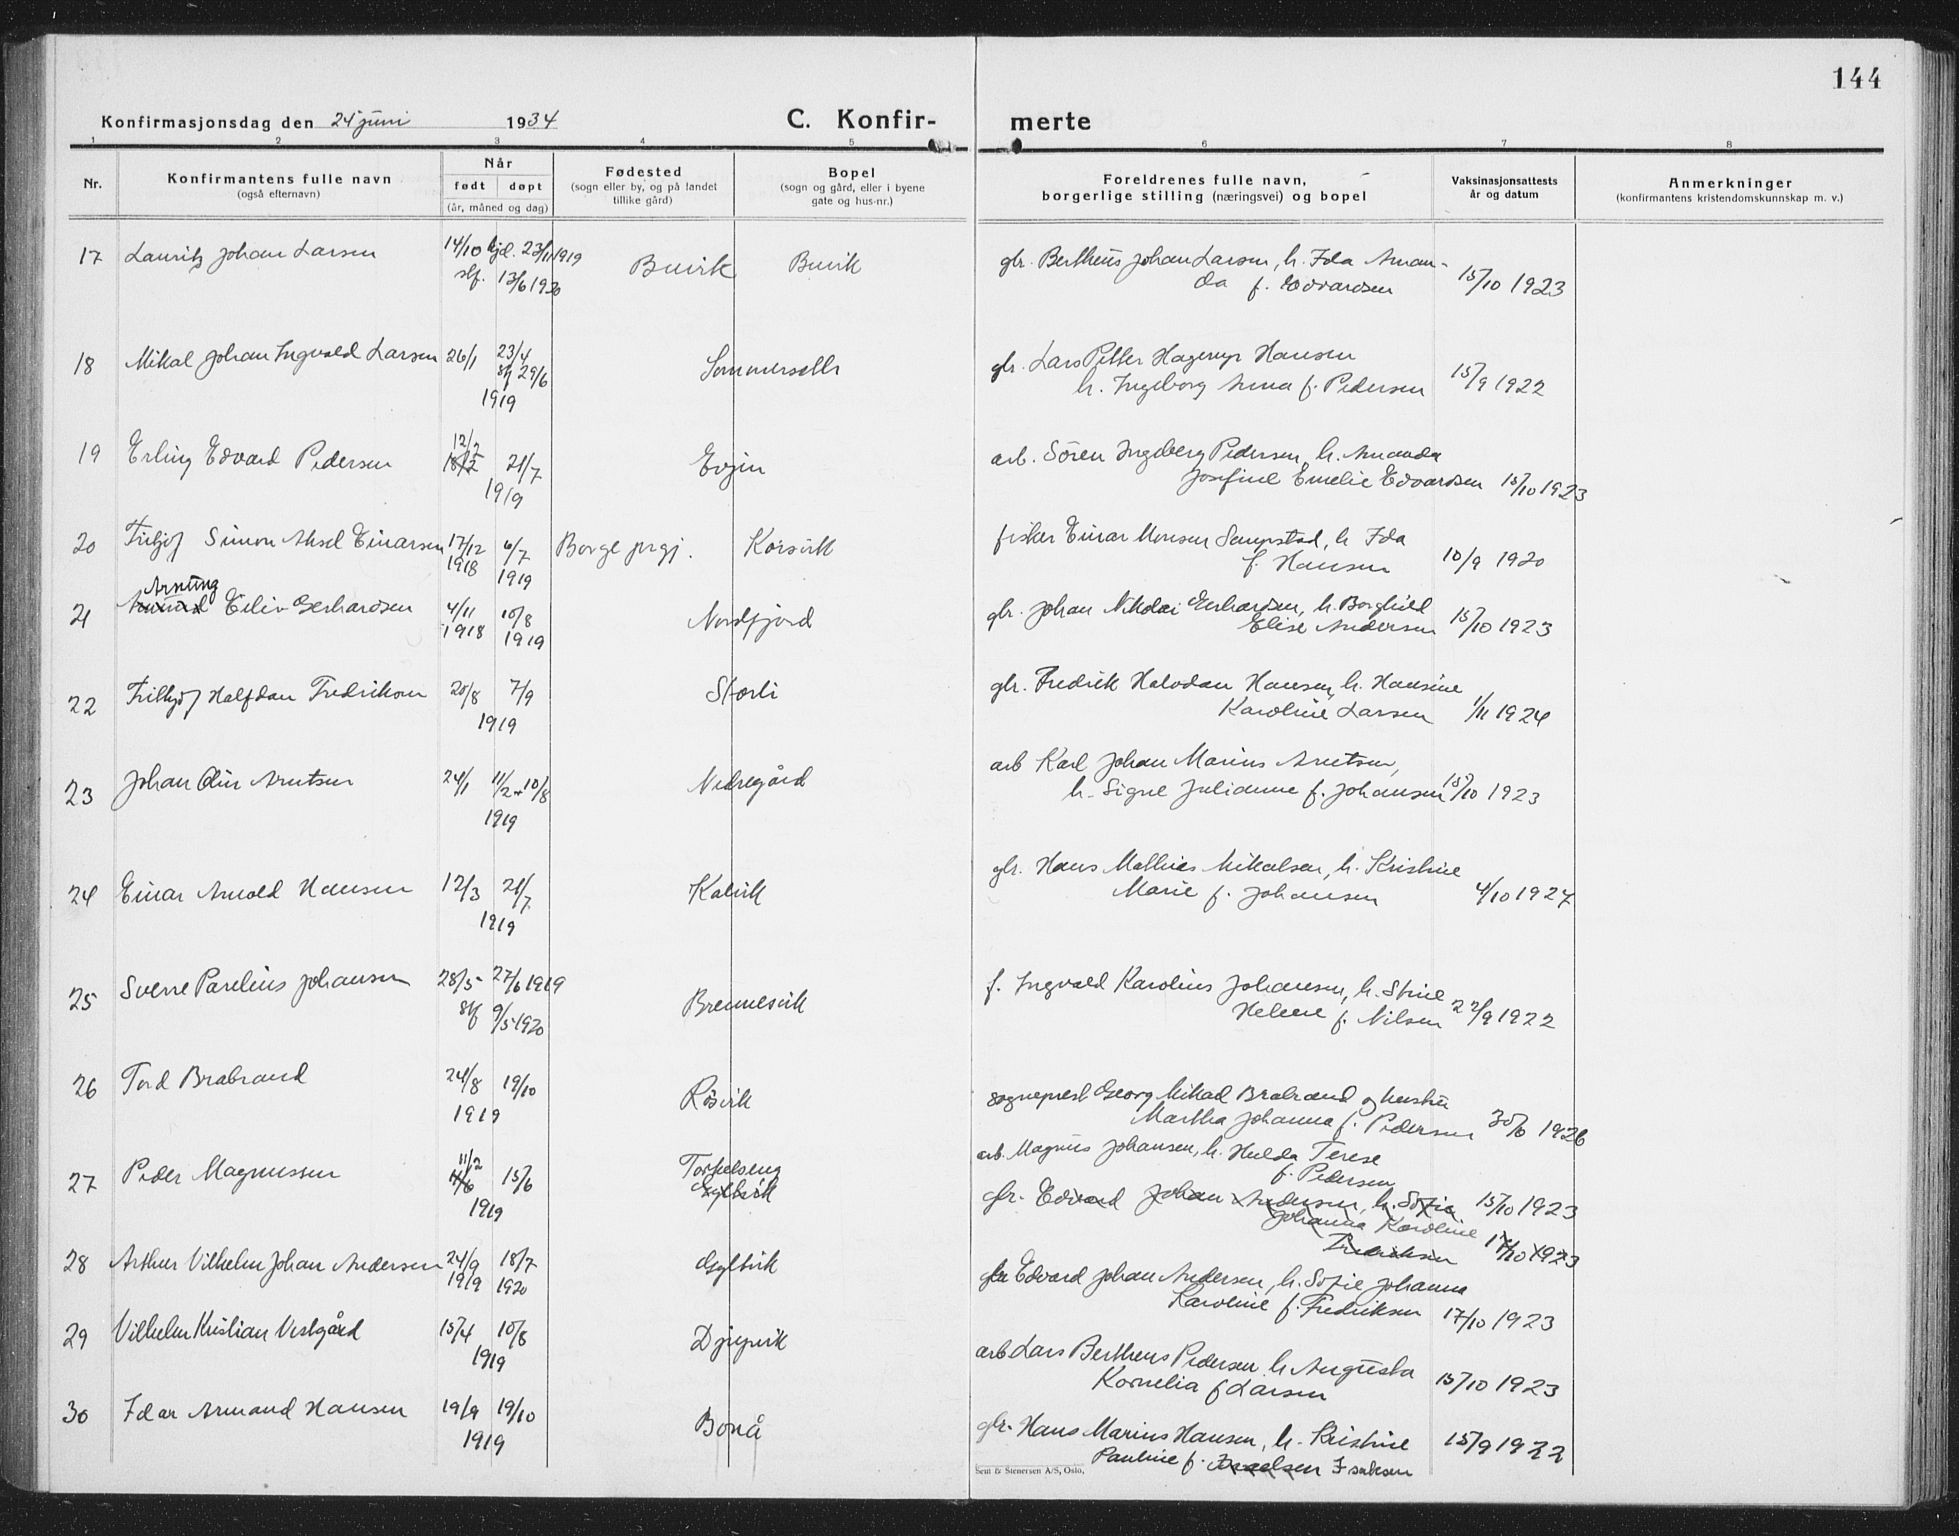 144
Konfirmasjonsdag den 24 juni 1934
C. Konfir-
merte
1 2 3 4 5 6 7 8
Nr.
Konfirmantens fulle navn
(også efternavn)
Når
født døpt
(år, måned og dag)
Fødested
(sogn eller by, og på landet
tillike gård)
Bopel
(sogn og gård, eller i byene
gate og hus-nr.)
Foreldrenes fulle navn,
borgerlige stilling (næringsvei) og bopel
Vaksinasjonsattests
år og datum
Anmerkninger
(konfirmantens kristendomskunnskap m. v.)
17 Lauritz Johan Larsen 14/10 hjd. 23/11 1919 Buvik Buvik gbr. Bertheus Johan Larsen, h. Ida Aman-
stf. 13/6 1920 da f. Edvardsen 15/10 1923
18 Mikal Johan Ingvald Larsen 26/1 23/4 Sommerseth gbr. Lars Petter Hagerup Hansen
stf 29/6 h. Ingeborg Anna f. Pedersen 15/9 1922
1919
19 Erling Edvard Pedersen 12/2 21/7 Evjen arb. Sören Ingeberg Pedersen, h. Amanda
1919 Josefine Emelie Edvardsen 15/10 1923
20 Fritjof Simon Aksel Einarsen 17/12 6/7 Borge prgj. Korsvik fisker Einar Monsen Sempstad, h Ida
1918 1919 f. Hansen 10/9 1920
Arnung
21 Eiliv Gerhardsen 4/11 10/8 Nordfjord gbr. Johan Nikolai Gerhardsen, h. Borghild
1918 1919 Elise Andersen 15/10 1923
22 Frithjof Halfdan Fredriksen 20/8 7/9 Storli gbr. Fredrik Halvdan Hansen, h. Hansine
1919 Karoline Larsen 1/11 1924
23 Johan Odin Arntsen 24/1 11/2 + 10/8 Nedregård arb Karl Johan Marius Arntsen,
1919 h. Signe Julianne f. Johansen 15/10 1923
24 Einar Arnold Hansen 12/3 21/7 Kalvik gbr. Hans Mathias Mikalsen, h. Kristine
1919 Marie f. Johansen 4/10 1927
25 Sverre Parelius Johansen 28/5 27/6 1919 Brennesvik f. Ingvald Karolius Johansen, h. Stine
stf 9/5 1920 Helene f. Nilsen 22/9 1922
26 Tord Brabrand 24/8 19/10 Røsvik sogneprest Georg Mikal Brabrand og hustru
1919 Martha Johanna f. Pedersen 30/6 1926
27 Peder Magnussen 11/2 15/6 Torkelseng arb. Magnus Johansen, h. Hulda Terese
4/6 Gyltvik f. Pedersen
1919 gbr. Edvard Johan Andersen, h. Sofie 15/10 1923
Johanna Karoline
Fredriksen 17/10 1923
28 Arthur Vilhelm Johan Andersen 24/9 18/7 Gyltvik gbr Edvard Johan Andersen, h. Sofie Johanna
1919 1920 Karoline f. Fredriksen 17/10 1923
29 Vilhelm Kristian Vestgård 15/4 10/8 Djupvik arb Lars Bertheus Pedersen h Augusta
1919 Kornelia f Larsen 15/10 1923
30 Idar Armand Hansen 19/9 19/10 Bonå gbr. Hans Marius Hansen, h. Kristine
1919 Pauline f. Israelsen Isaksen 15/9 1922
Sem & Stenersen A/S, Oslo.